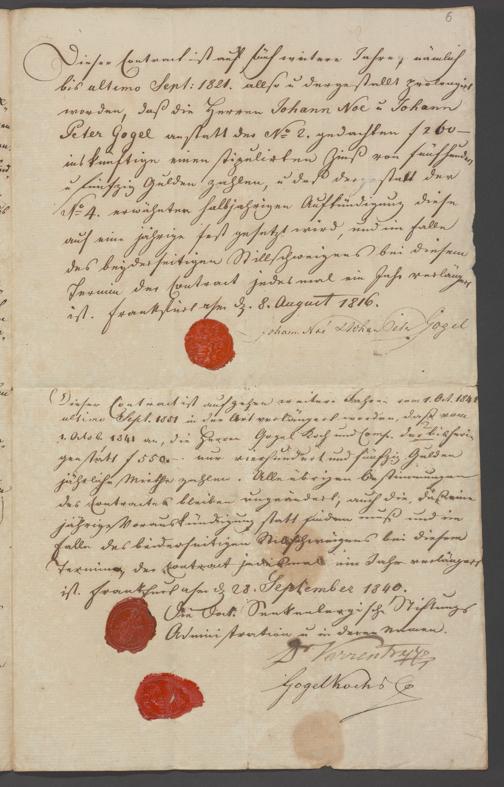 6
Dieser Contract ist auf fünf weitere Jahre, nämlich
bis ultimo Sept: 1821. also u dergestallt prolongirt
worden, daß die Herren Johann Noé u Johann
Peter Gogel anstatt der No 2. gedachten f 200 —
ins künftige einen stipulirten Zins von fünfhundert
u fünfzig Gulden zahlen, u daß der statt der
No 4. erwähnten halbjährigen Aufkündigung diese
auf eine jährige fest gesetzt wird und im Falle
des beyderseitigen Stillschweigens bei diesem
Termin der Contract jedesmal ein Jahr verlängert
ist. Frankfurt a/m d. 8. August 1816.
Johann Noé Peter Gogel
Dieser Contract ist auf zehen weitere Jahre vom 1. Oct. 1841
ultimo Sept. 1851 in der Art verlängert worden, daß vom
1. Octob 1841 an, die Herrn Gogel Koch und Comp. der bisherigen
anstatt f 550.— nur vierhundert und fünfzig Gulden
jährliche Miethe zahlen. Alle übrigen Bestimmungen
des Contractes bleiben ungeändert, auch die, daß eine
jährige Vorauskündigung statt finden muß und im
Falle des beiderseitigen Stillschweigens bei diesem
Termine, der Contract jedesmal ein Jahr verlängert
ist. Frankfurt a/m d. 28. September 1840.
Die Doct. Senkenbergische Stiftungs
Administration u in deren Namen.
Dr Varrentrapp
Gogel Koch & Co